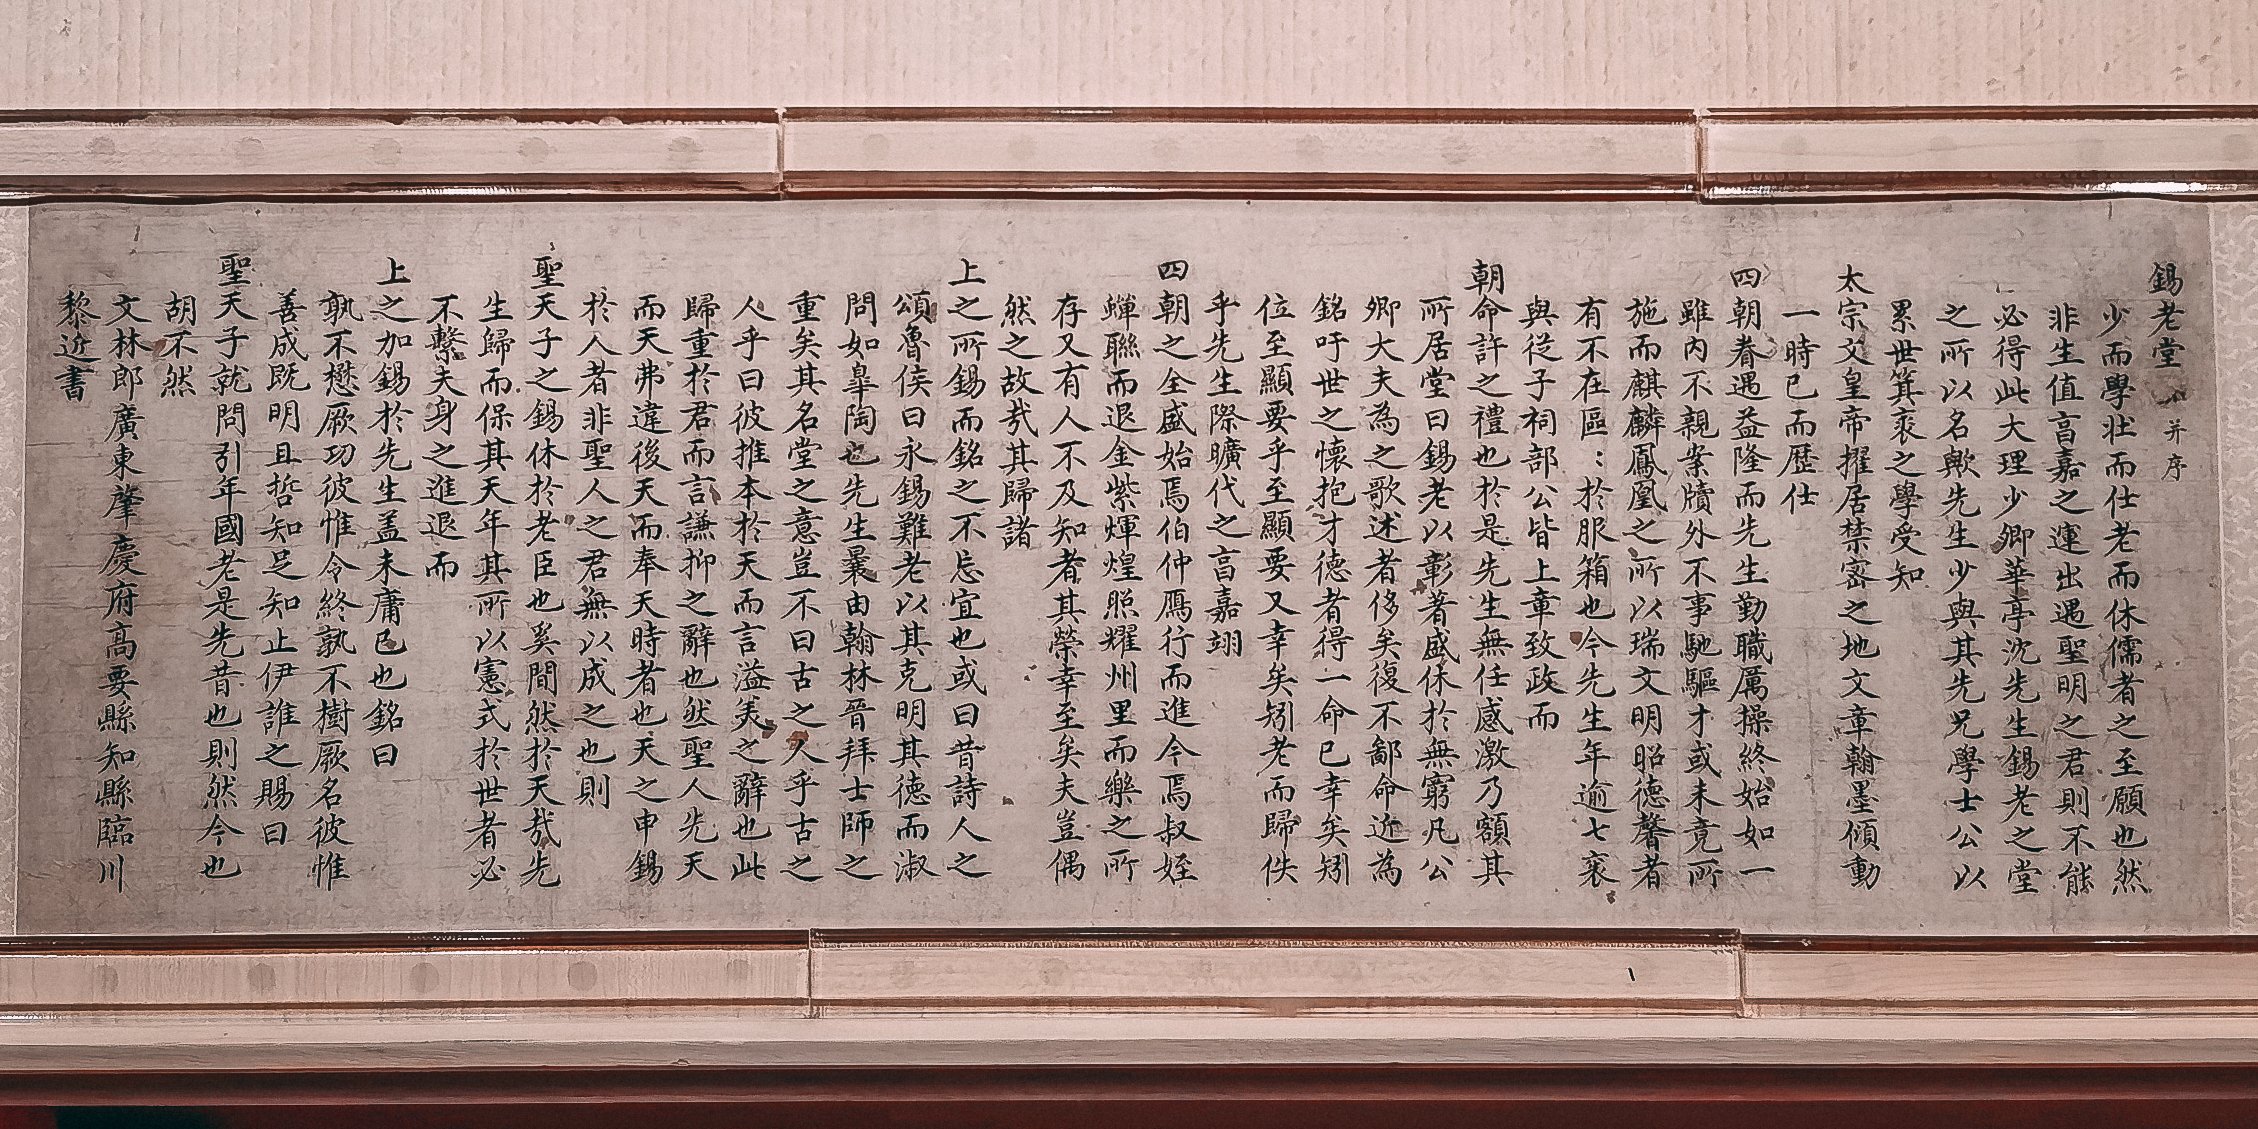 錫老堂銘并序
少而學壯而仕老而休儒者之至願也然
非生值亯嘉之運出遇聖明之君則不能
必得此大理少卿華亭沈先生錫老之堂
之所以名歟先生少與其先兄學士公以
累世箕裘之學受知
太宗文皇帝擢居禁密之地文章翰墨傾動
一時已而歷仕
四朝眷遇益隆而先生勤職厲操終始如一
雖內不親案牘外不事馳驅才或未竟所
施而麒麟鳳凰之所以瑞文明昭德馨者
有不在區〻於服箱也今先生年逾七袠
與從子祠部公皆上章致政而
朝命許之禮也於是先生無任感激乃額其
所居堂曰錫老以彰著盛休於無窮凡公
卿大夫為之歌述者侈矣復不鄙命近為
銘吁世之懷抱才德者得一命已幸矣矧
位至顯要乎至顯要又幸矣矧老而歸佚
乎先生際曠代之亯嘉翊
四朝之全盛始焉伯仲鴈行而進今焉叔姪
蟬聯而退金紫煇煌照耀州里而樂之所
存又有人不及知者其榮幸至矣夫豈偶
然之故哉其歸諸
上之所錫而銘之不忘宜也或曰昔詩人之
頌魯侯曰永錫難老以其克明其德而淑
問如臯陶也先生曩由翰林晉拜士師之
重矣其名堂之意豈不曰古之人乎古之
人乎曰彼推本於天而言溢美之辭也此
歸重於君而言謙抑之辭也然聖人先天
而天弗違後天而奉天時者也天之申錫
於人者非聖人之君無以成之也則
聖天子之錫休於老臣也奚間然於天哉先
生歸而保其天年其所以憲式於世者必
不繫夫身之進退而
上之加錫於先生盖未庸已也銘曰
孰不懋厥功彼惟令終孰不樹厥名彼惟
善成既明且哲知足知止伊誰之賜曰
聖天子就問引年國老是先昔也則然今也
胡不然
文林郎廣東肇慶府高要縣知縣臨川
黎近書